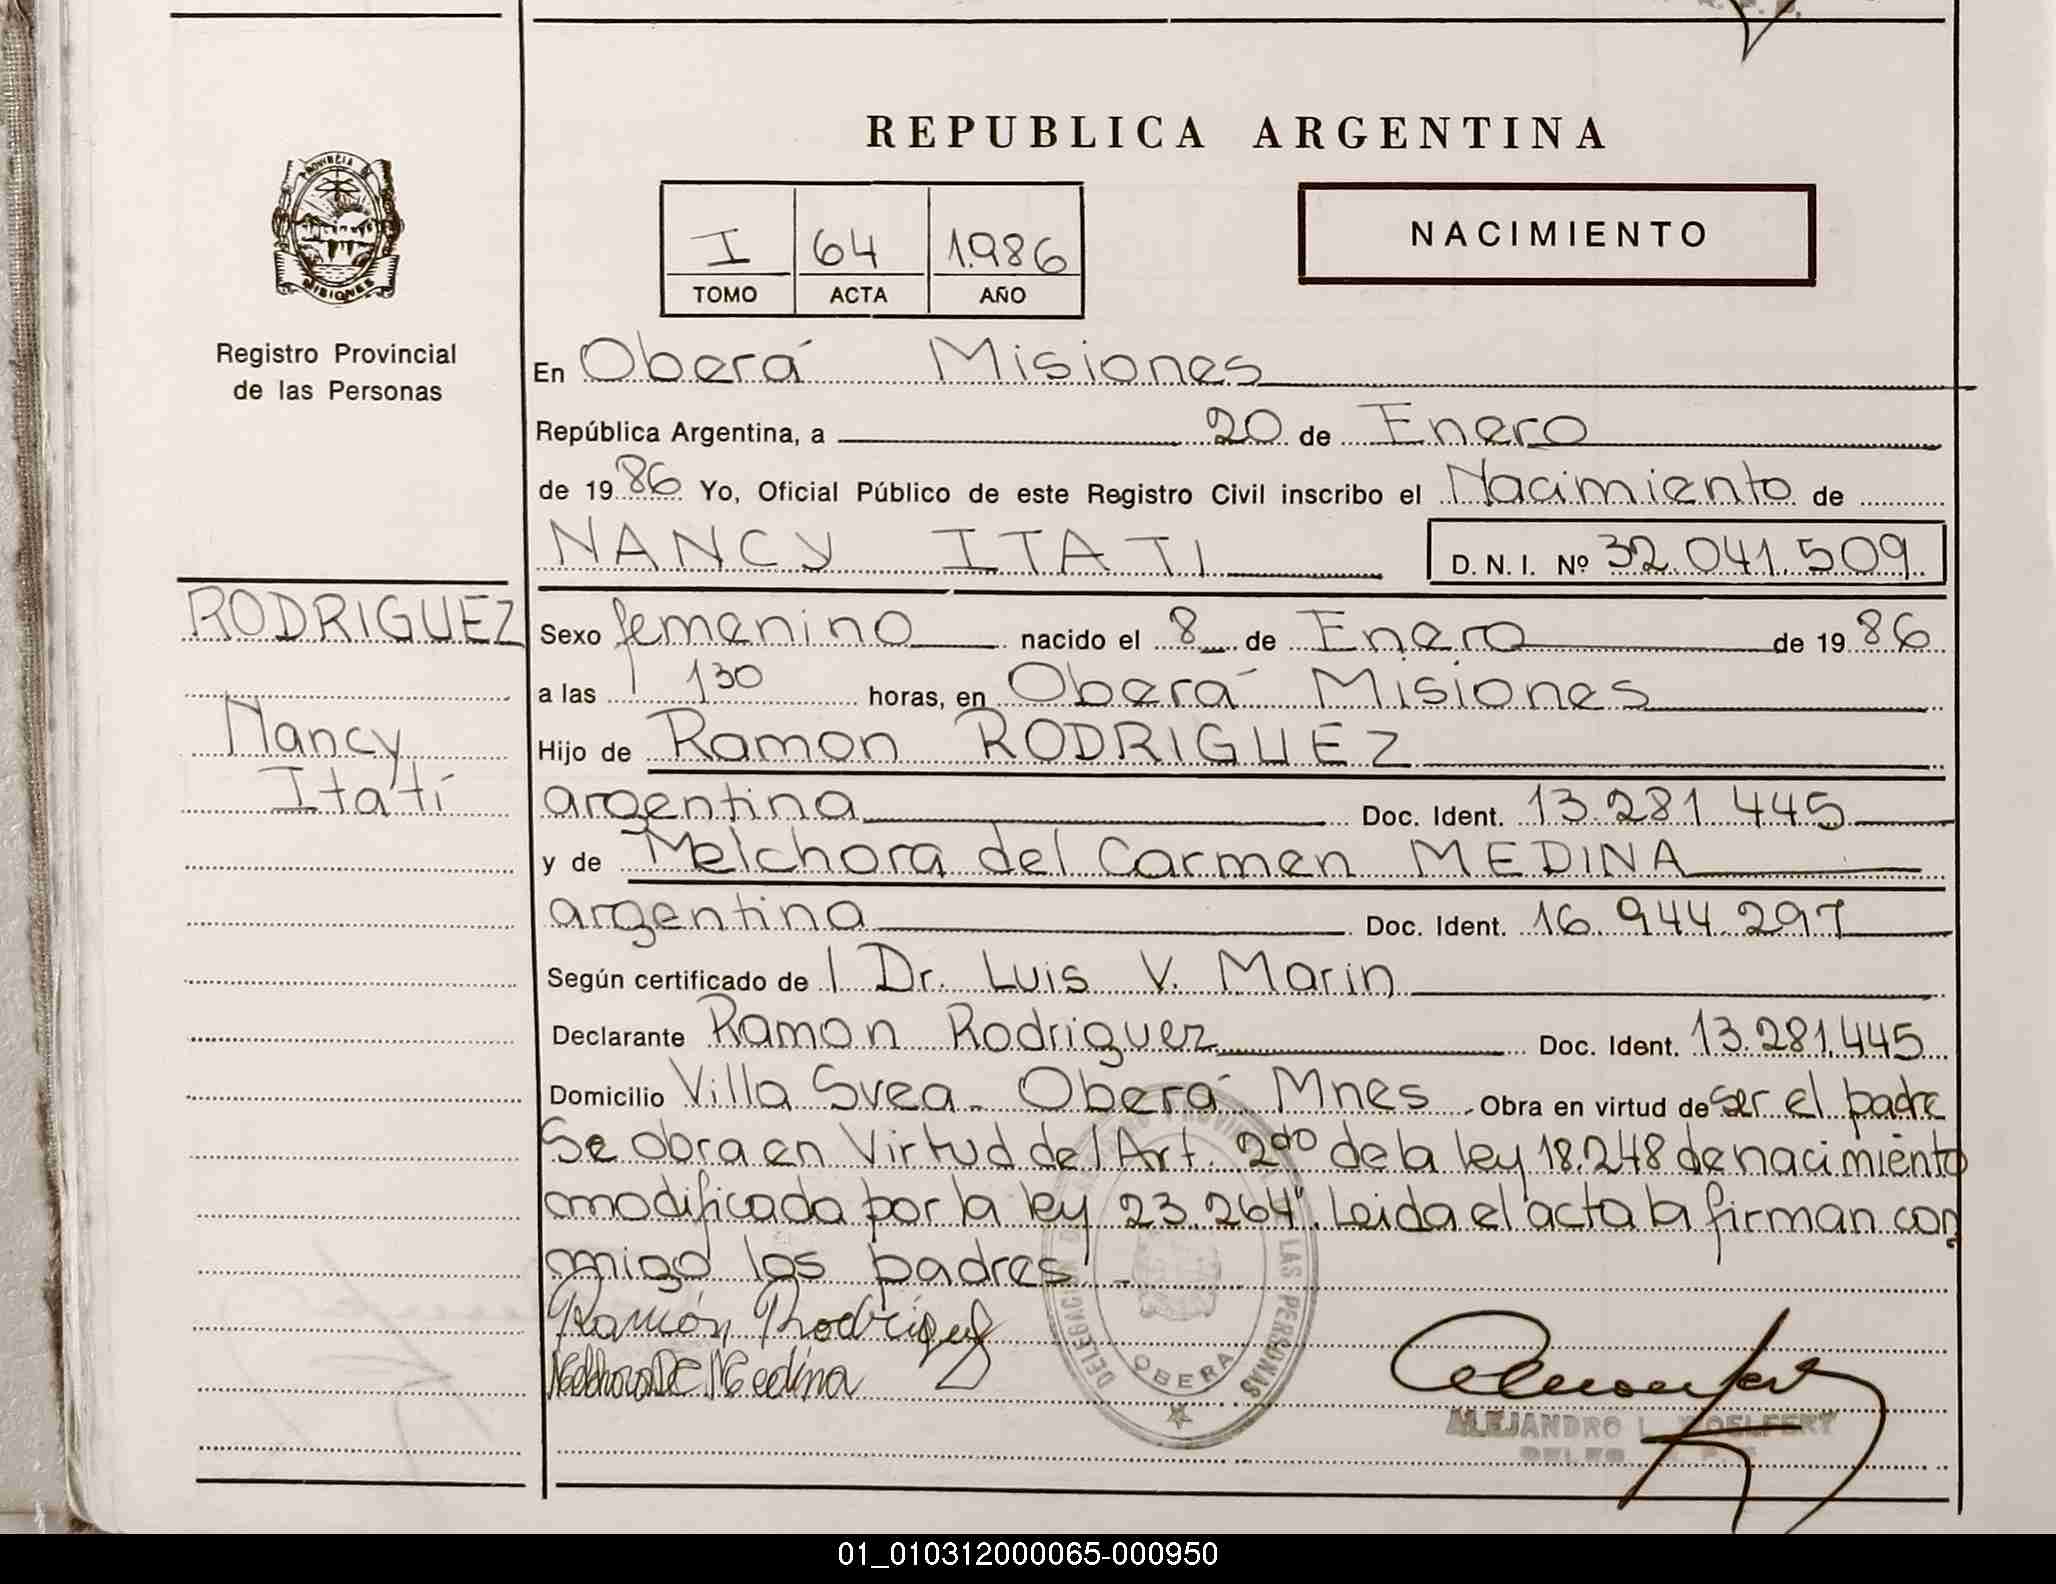 REPUBLICA ARGENTINA
PROVINCIA DE
MISIONES
Registro Provincial
de las Personas
I 64 1.986
TOMO ACTA AÑO
NACIMIENTO
En Oberá Misiones
República Argentina, a 20 de Enero
de 19 86 Yo, Oficial Público de este Registro Civil inscribo el Nacimiento de
NANCY ITATI D. N. I. Nº 32.041.509
RODRIGUEZ
Nancy
Itatí
Sexo femenino nacido el 8 de Enero de 19 86
a las 130 horas, en Oberá Misiones
Hijo de Ramon RODRIGUEZ
argentina Doc. Ident. 13.281.445
y de Melchora del Carmen MEDINA
argentina Doc. Ident. 16.944.297
Según certificado de l Dr. Luis V. Marin
Declarante Ramon Rodriguez Doc. Ident. 13.281.445
Domicilio Villa Svea - Oberá Mnes Obra en virtud de ser el padre
Se obra en Virtud del Art. 2do de la ley 18.248 de nacimiento
modificada por la ley 23.264". Leida el acta la firman con
migo los padres -
Ramón Rodriguez
Melchora DC Medina
DELEGACION LAS PERSONAS
OBERA
ALEJANDRO L.
01_010312000065-000950